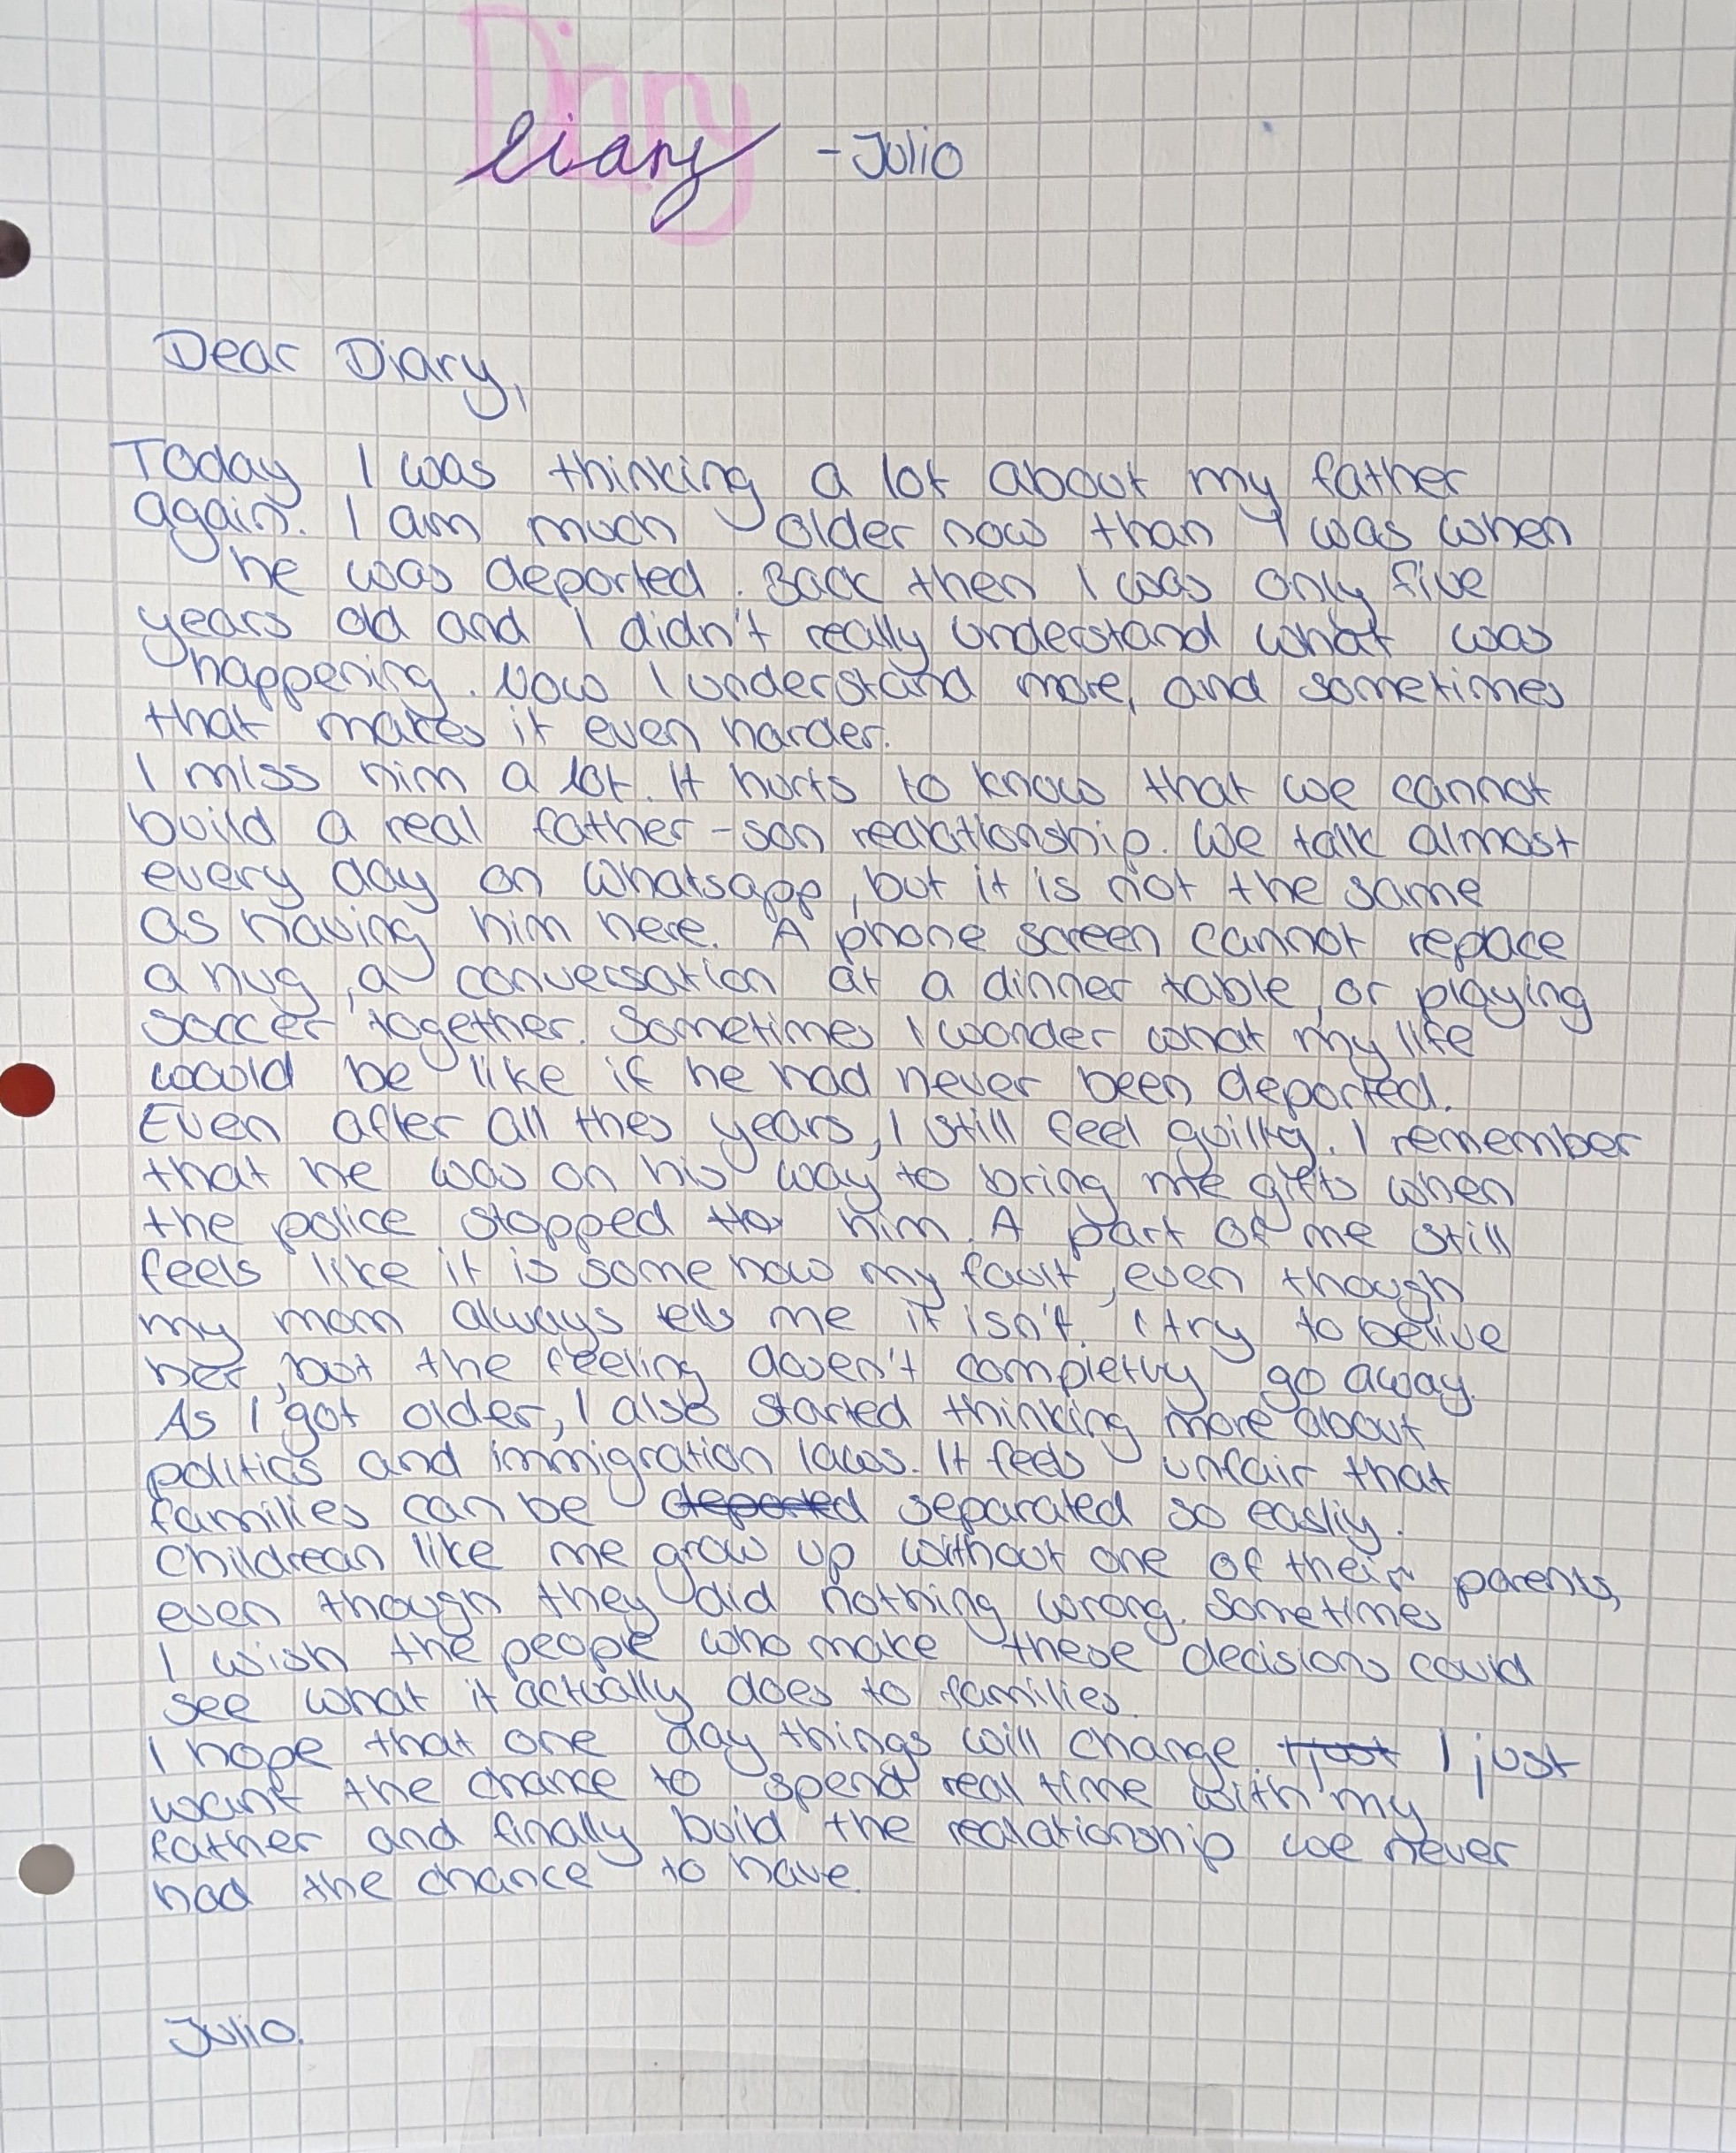 Diary
Diary - Julio
Dear Diary,
Today I was thinking a lot about my father
again. I am much older now than I was when
he was deported. Back then I was only five
years old and I didn't really understand what was
happening. Now I understand more, and sometimes
that makes it even harder.
I miss him a lot. It hurts to know that we cannot
build a real father-son realationship. We talk almost
every day on Whatsapp, but it is not the same
as having him here. A phone screen cannot replace
a hug, a conversation at a dinner table, or playing
soccer together. Sometimes I wonder what my life
would be like if he had never been deported.
Even after all thes years, I still feel guilty. I remember
that he was on his way to bring me gifts when
the police stopped him. A part of me still
feels like it is somehow my fault, even though
my mom always tells me it isn't. I try to belive
her, but the feeling doesn't completly go away.
As I got older, I also started thinking more about
politics and immigration laws. It feels unfair that
families can be deported separated so easliy.
Childrean like me grow up without one of their parents,
even though they did nothing wrong. Sometimes
I wish the people who make these decisions could
see what it actually does to families.
I hope that one day things will change. I just I just
want the chance to spend real time with my
father and finally build the realationship we never
had the chance to have.
Julio.